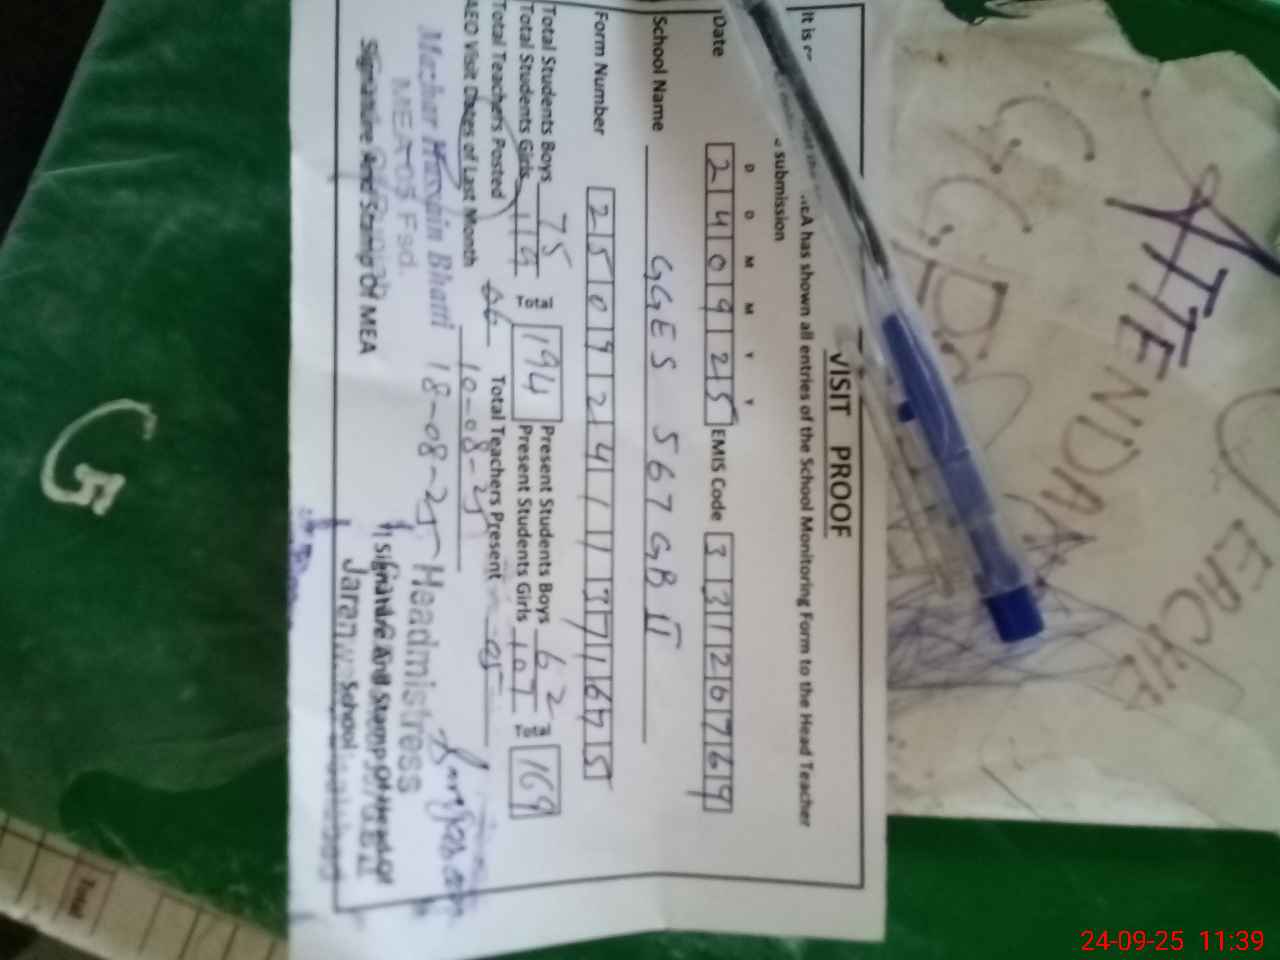 VISIT PROOF
It is has shown all entries of the School Monitoring Form to the Head Teacher
submission
D D M M Y Y
Date 240925 EMIS Code 33126769
School Name GGES 567 GB II
Form Number
Total Students Boys 75 Total 194 Present Students Boys 62 Total 169
Total Students Girls 119 Present Students Girls 107
Total Teachers Posted 06 Total Teachers Present 05
AEO Visit Dates of Last Month 10-08-25
18-08-25
Mazhar Hussain Bhatti
MEA-05 Fsd.
Signature And Stamp Of MEA
Headmistress
Signature And Stamp Of Head Of
School
G5
TEACHER
ATTENDANCE
Total
24-09-25 11:39